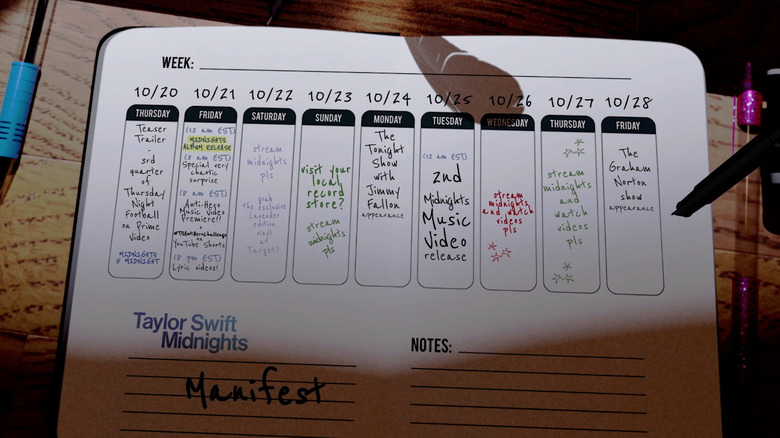 WEEK:
10/20 10/21 10/22 10/23 10/24 10/25 10/26 10/27 10/28
THURSDAY
Teaser
Trailer
3rd
quarter
of
Thursday
Night
Football
on Prime
Video
MIDNIGHTS
@ MIDNIGHT
FRIDAY
(12 am EST)
MIDNIGHTS
ALBUM RELEASE
(3 am EST)
Special very
chaotic
surprise
(8 am EST)
Anti-Hero
Music Video
Premiere!!
+
#TSAntiHeroChallenge
on
YouTube Shorts
(8 pm EST)
Lyric videos!
SATURDAY
stream
midnights
pls
grab
the exclusive
Lavender
edition
vinyl
at
Target?
SUNDAY
visit your
local
record
store?
stream
midnights
pls
MONDAY
The
Tonight
Show
with
Jimmy
Fallon
appearance
TUESDAY
(12 am EST)
2nd
Midnights
Music
Video
release
WEDNESDAY
stream
midnights
and watch
videos
pls
THURSDAY
stream
midnights
and
watch
videos
pls
FRIDAY
The
Graham
Norton
show
appearance
Taylor Swift
Midnights
Manifest
NOTES: